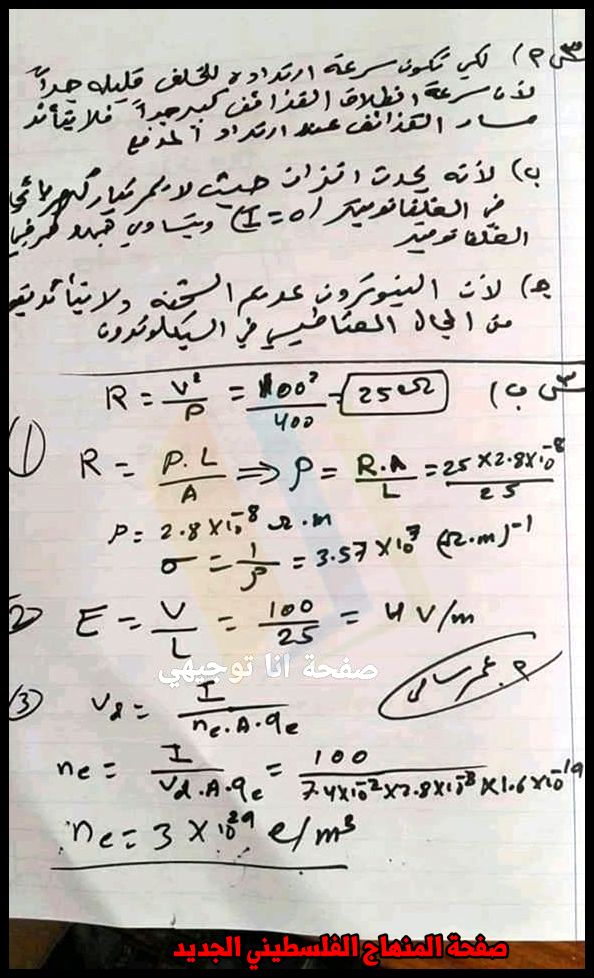 س٣ م) لكي تكون سرعة ارتداده للخلف قليله جداً
لأن سرعة انطلاق القذائف كبير جداً فلا يتأثر
مسار القذائف عند ارتداد المدفع
ب) لأنه يحدث اتزان حيث لا يمر تيار كهربائي
في الغلفانوميتر (I = 0) ويتساوي جهد طرفي
الغلفانوميتر
ج) لأن النيوترون عديم الشحنه ولا يتأثر
من المجال المغناطيسي في السيكلوترون
س٣ ب) R = V² / P = 100² / 400 = 25 Ω
① R = ρ.L / A ⇒ ρ = R.A / L = 25 × 2.8×10⁻⁸ / 25
ρ = 2.8×10⁻⁸ Ω.m
σ = 1 / ρ = 3.57×10⁷ (Ω.m)⁻¹
② E = V / L = 100 / 25 = 4 V/m
صفحة انا توجيهي
③ Vd = I / ne.A.qe
ne = I / Vd.A.qe = 100 / 7.4×10⁻²×2.8×10⁻⁸×1.6×10⁻¹⁹
ne = 3 × 10²⁹ e/m³
صفحة المنهاج الفلسطيني الجديد